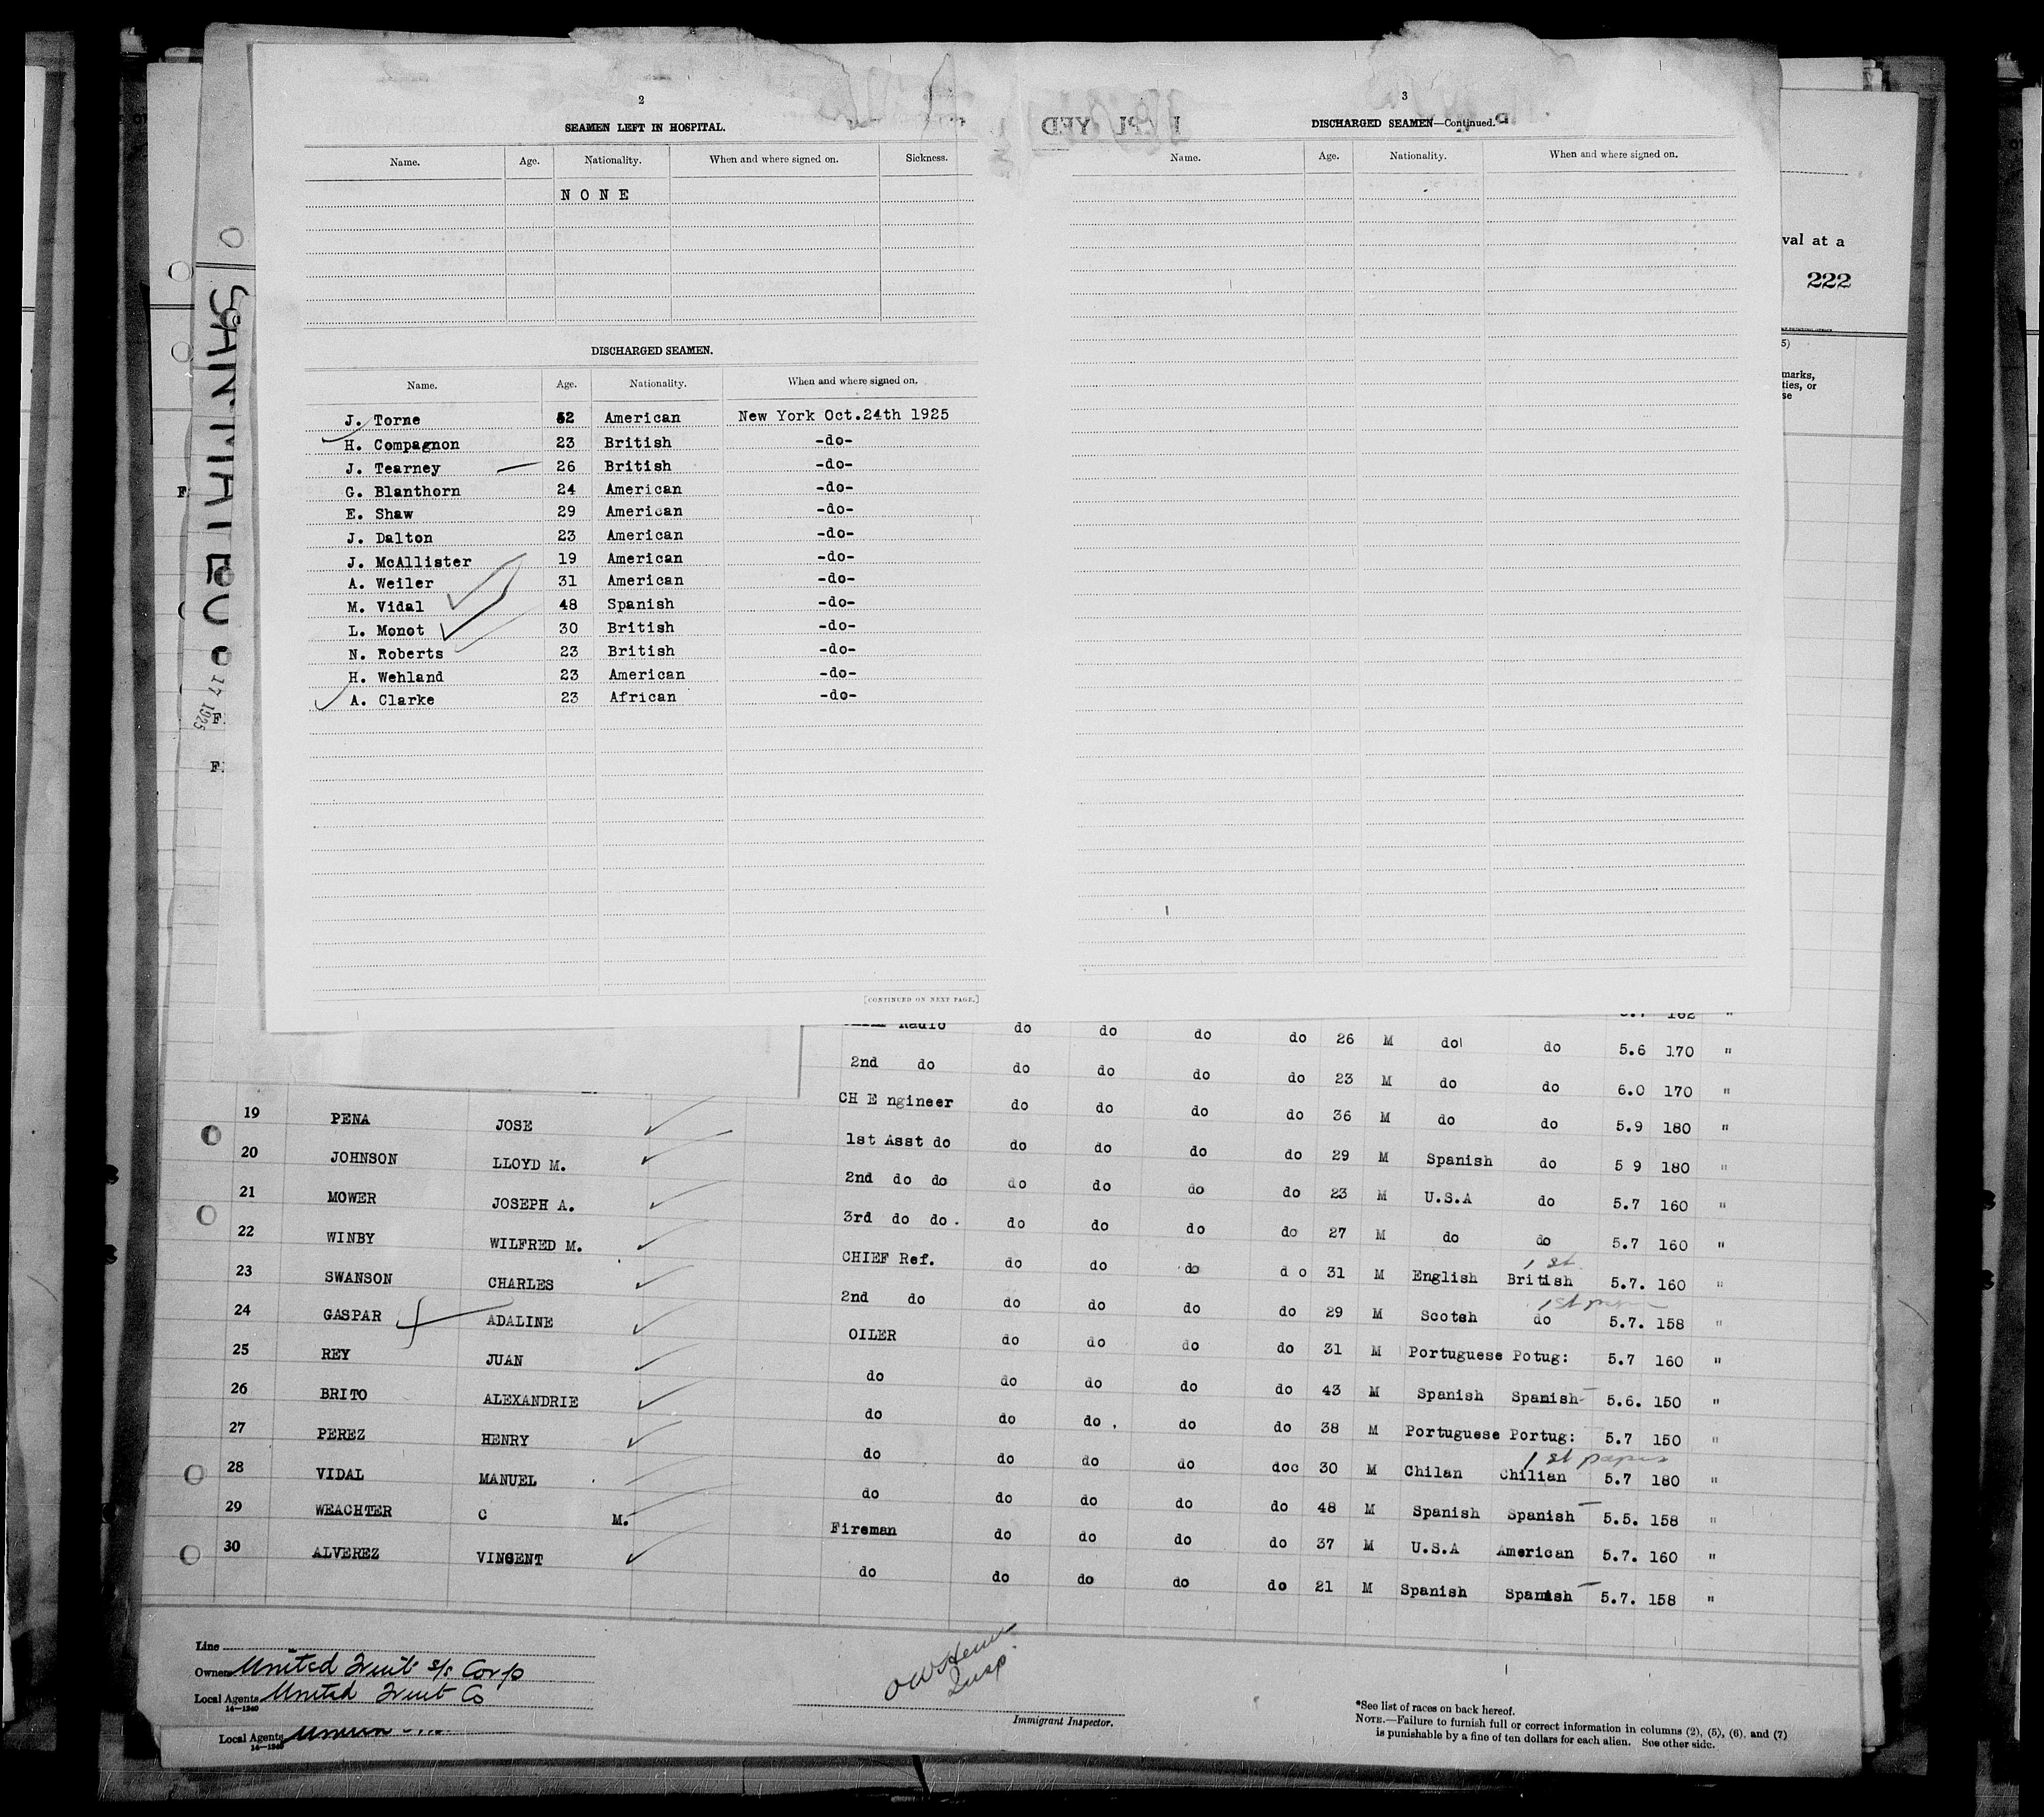 2
SEAMEN LEFT IN HOSPITAL.
Name. Age. Nationality. When and where signed on. Sickness.
N O N E
DISCHARGED SEAMEN.
Name. Age. Nationality. When and where signed on.
J. Torne 52 American New York Oct.24th 1925
H. Compagnon 23 British -do-
J. Tearney 26 British -do-
G. Blanthorn 24 American -do-
E. Shaw 29 American -do-
J. Dalton 23 American -do-
J. McAllister 19 American -do-
A. Weiler 31 American -do-
M. Vidal 48 Spanish -do-
L. Monot 30 British -do-
N. Roberts 23 British -do-
H. Wehland 23 American -do-
A. Clarke 23 African -do-
[CONTINUED ON NEXT PAGE.]
3
DISCHARGED SEAMEN—Continued.
Name. Age. Nationality. When and where signed on.
val at a
222
5)
marks,
ties, or
se
F.
F.
F.
17 1925
162 "
Radio do do do do 26 M do do 5.6 170 "
2nd do do do do do 23 M do do 6.0 170 "
19 PENA JOSE CH E ngineer do do do do 36 M do do 5.9 180 "
20 JOHNSON LLOYD M. 1st Asst do do do do do 29 M Spanish do 5 9 180 "
21 MOWER JOSEPH A. 2nd do do do do do do 23 M U.S.A do 5.7 160 "
22 WINBY WILFRED M. 3rd do do. do do do do 27 M do do 5.7 160 "
1 st
23 SWANSON CHARLES CHIEF Ref. do do do d o 31 M English British 5.7. 160 "
1st
24 GASPAR ADALINE 2nd do do do do do 29 M Scotsh do 5.7. 158 "
25 REY JUAN OILER do do do do 31 M Portuguese Potug: 5.7 160 "
26 BRITO ALEXANDRIE do do do do do 43 M Spanish Spanish 5.6. 150 "
27 PEREZ HENRY do do do. do do 38 M Portuguese Portug: 5.7 150 "
1 st papers
28 VIDAL MANUEL do do do do doo 30 M Chilan Chilian 5.7 180 "
29 WEACHTER C M. do do do do do 48 M Spanish Spanish 5.5. 158 "
30 ALVEREZ VINCENT Fireman do do do do 37 M U.S.A American 5.7. 160 "
do do do do do 21 M Spanish Spanish 5.7. 158 "
Line
Owners United Fruit S/S Corp
Local Agents United Fruit Co
14—1240
Local Agents
14—1240
Insp
Immigrant Inspector.
*See list of races on back hereof.
NOTE.—Failure to furnish full or correct information in columns (2), (5), (6), and (7)
is punishable by a fine of ten dollars for each alien. See other side.